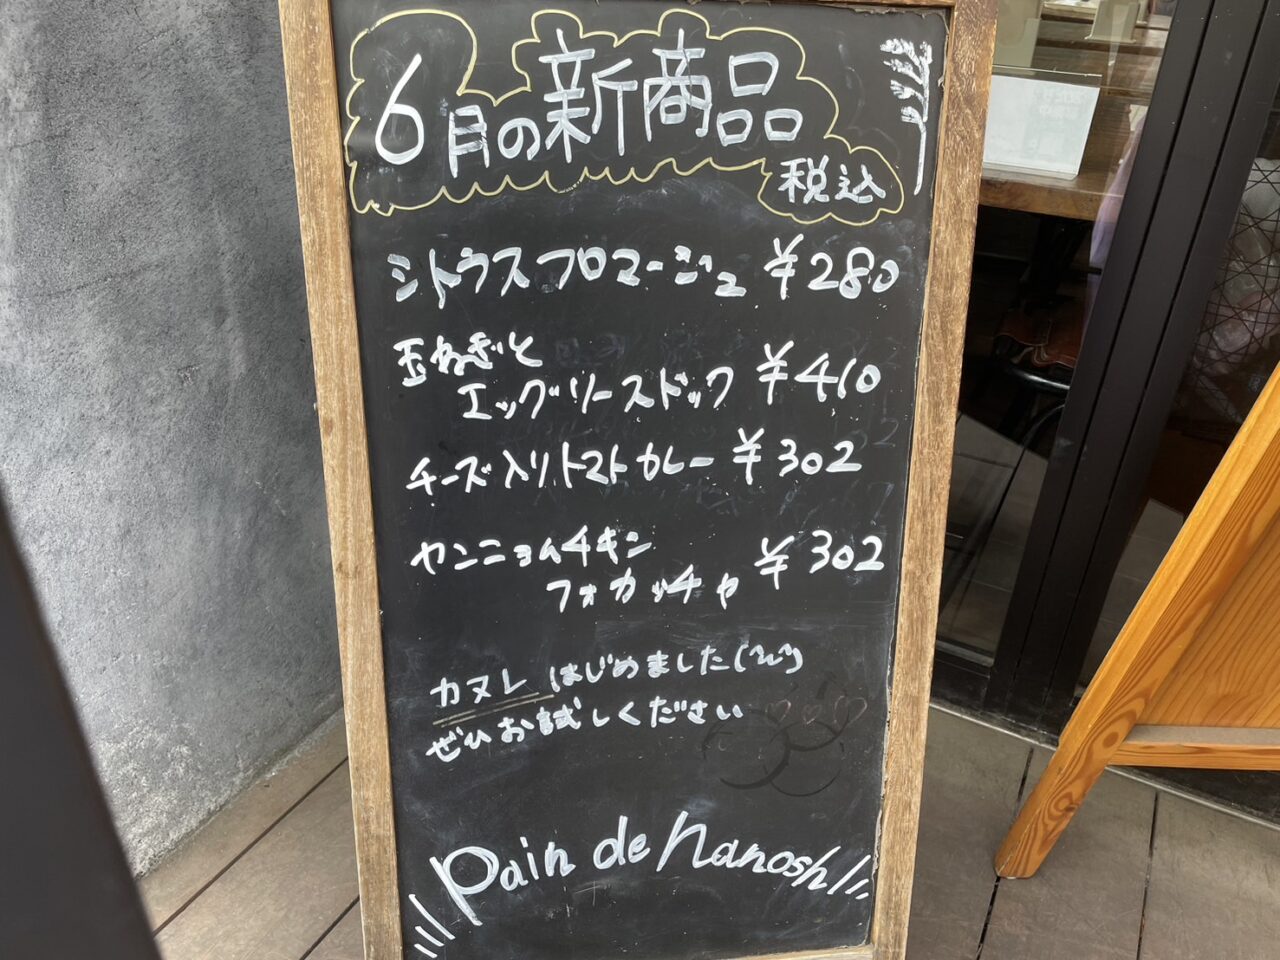 6月の新商品
税込
シトラスフロマージュ ¥280
玉ねぎと
エッグソースドッグ ¥410
チーズ入りトマトカレー ¥302
ヤンニョムチキン
フォカッチャ ¥302
カヌレはじめました(^w^)
ぜひお試しください
Pain de Nanosh